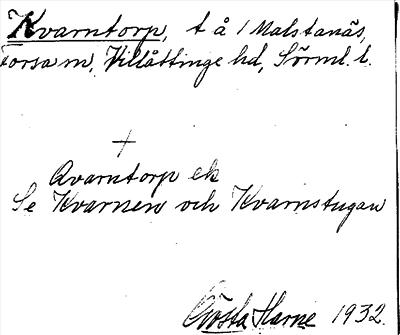 Kvarntorp, t å 1 Malstanäs,
Forsa m, Villåttinge hd, Sörml. l.
+
Kvarntorp ek
Se Kvarnen och Kvarnstugan
Gösta Harne 1932.